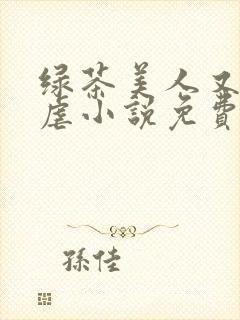 绿茶美人又
虐小説免費
孫佳